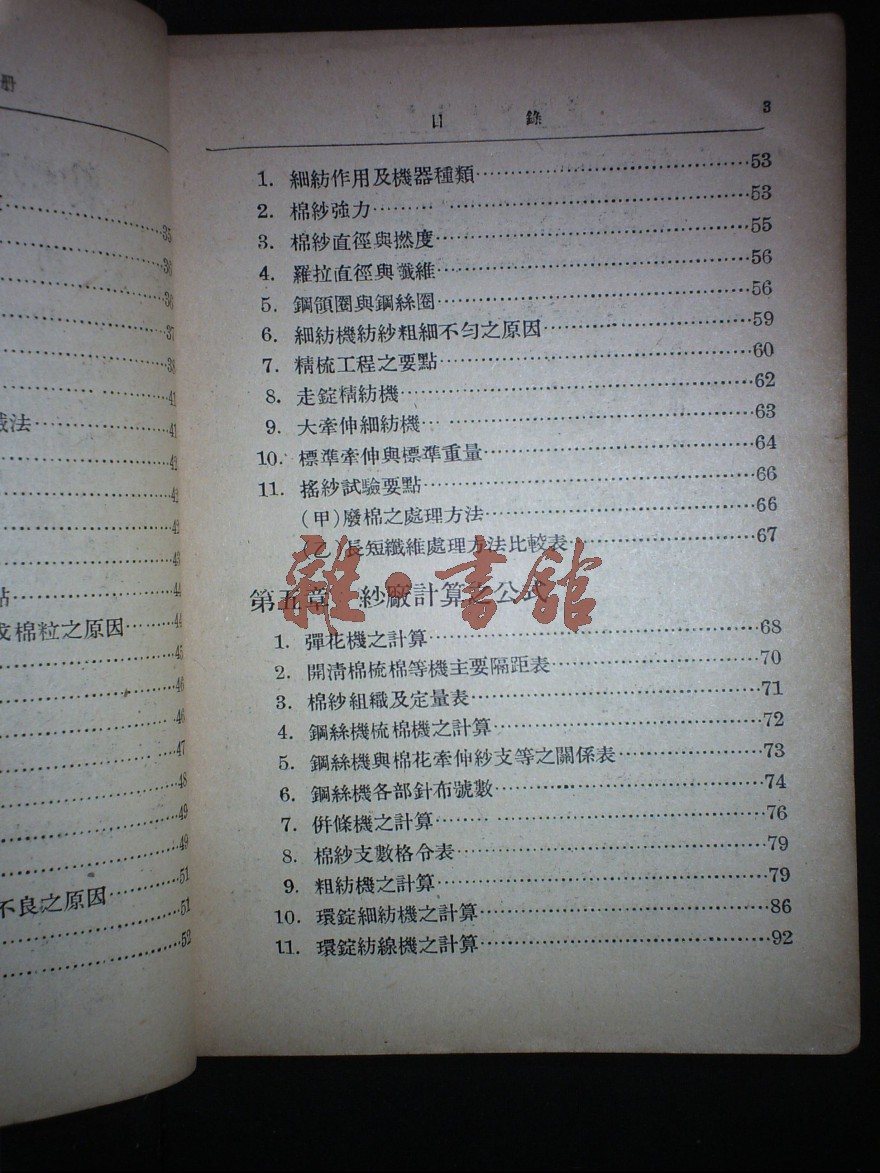 冊
35
36
36
37
38
41
法……41
42
42
42
43
點……44
棉粒之原因……44
45
46
46
47
48
49
49
不良之原因……51
51
52
目 錄 3
1. 細紡作用及機器種類……53
2. 棉紗強力……53
3. 棉紗直徑與撚度……55
4. 羅拉直徑與纖維……56
5. 鋼領圈與鋼絲圈……56
6. 細紡機紡紗粗細不勻之原因……59
7. 精梳工程之要點……60
8. 走錠精紡機……62
9. 大牽伸細紡機……63
10. 標準牽伸與標準重量……64
11. 搖紗試驗要點……66
(甲)廢棉之處理方法……66
(乙)長短纖維處理方法比較表……67
第五章 紗廠計算之公式
1. 彈花機之計算……68
2. 開淸棉梳棉等機主要隔距表……70
3. 棉紗組織及定量表……71
4. 鋼絲機梳棉機之計算……72
5. 鋼絲機與棉花牽伸紗支等之關係表……73
6. 鋼絲機各部針布號數……74
7. 併條機之計算……76
8. 棉紗支數格令表……79
9. 粗紡機之計算……79
10. 環錠細紡機之計算……86
11. 環錠紡線機之計算……92
雜·書館